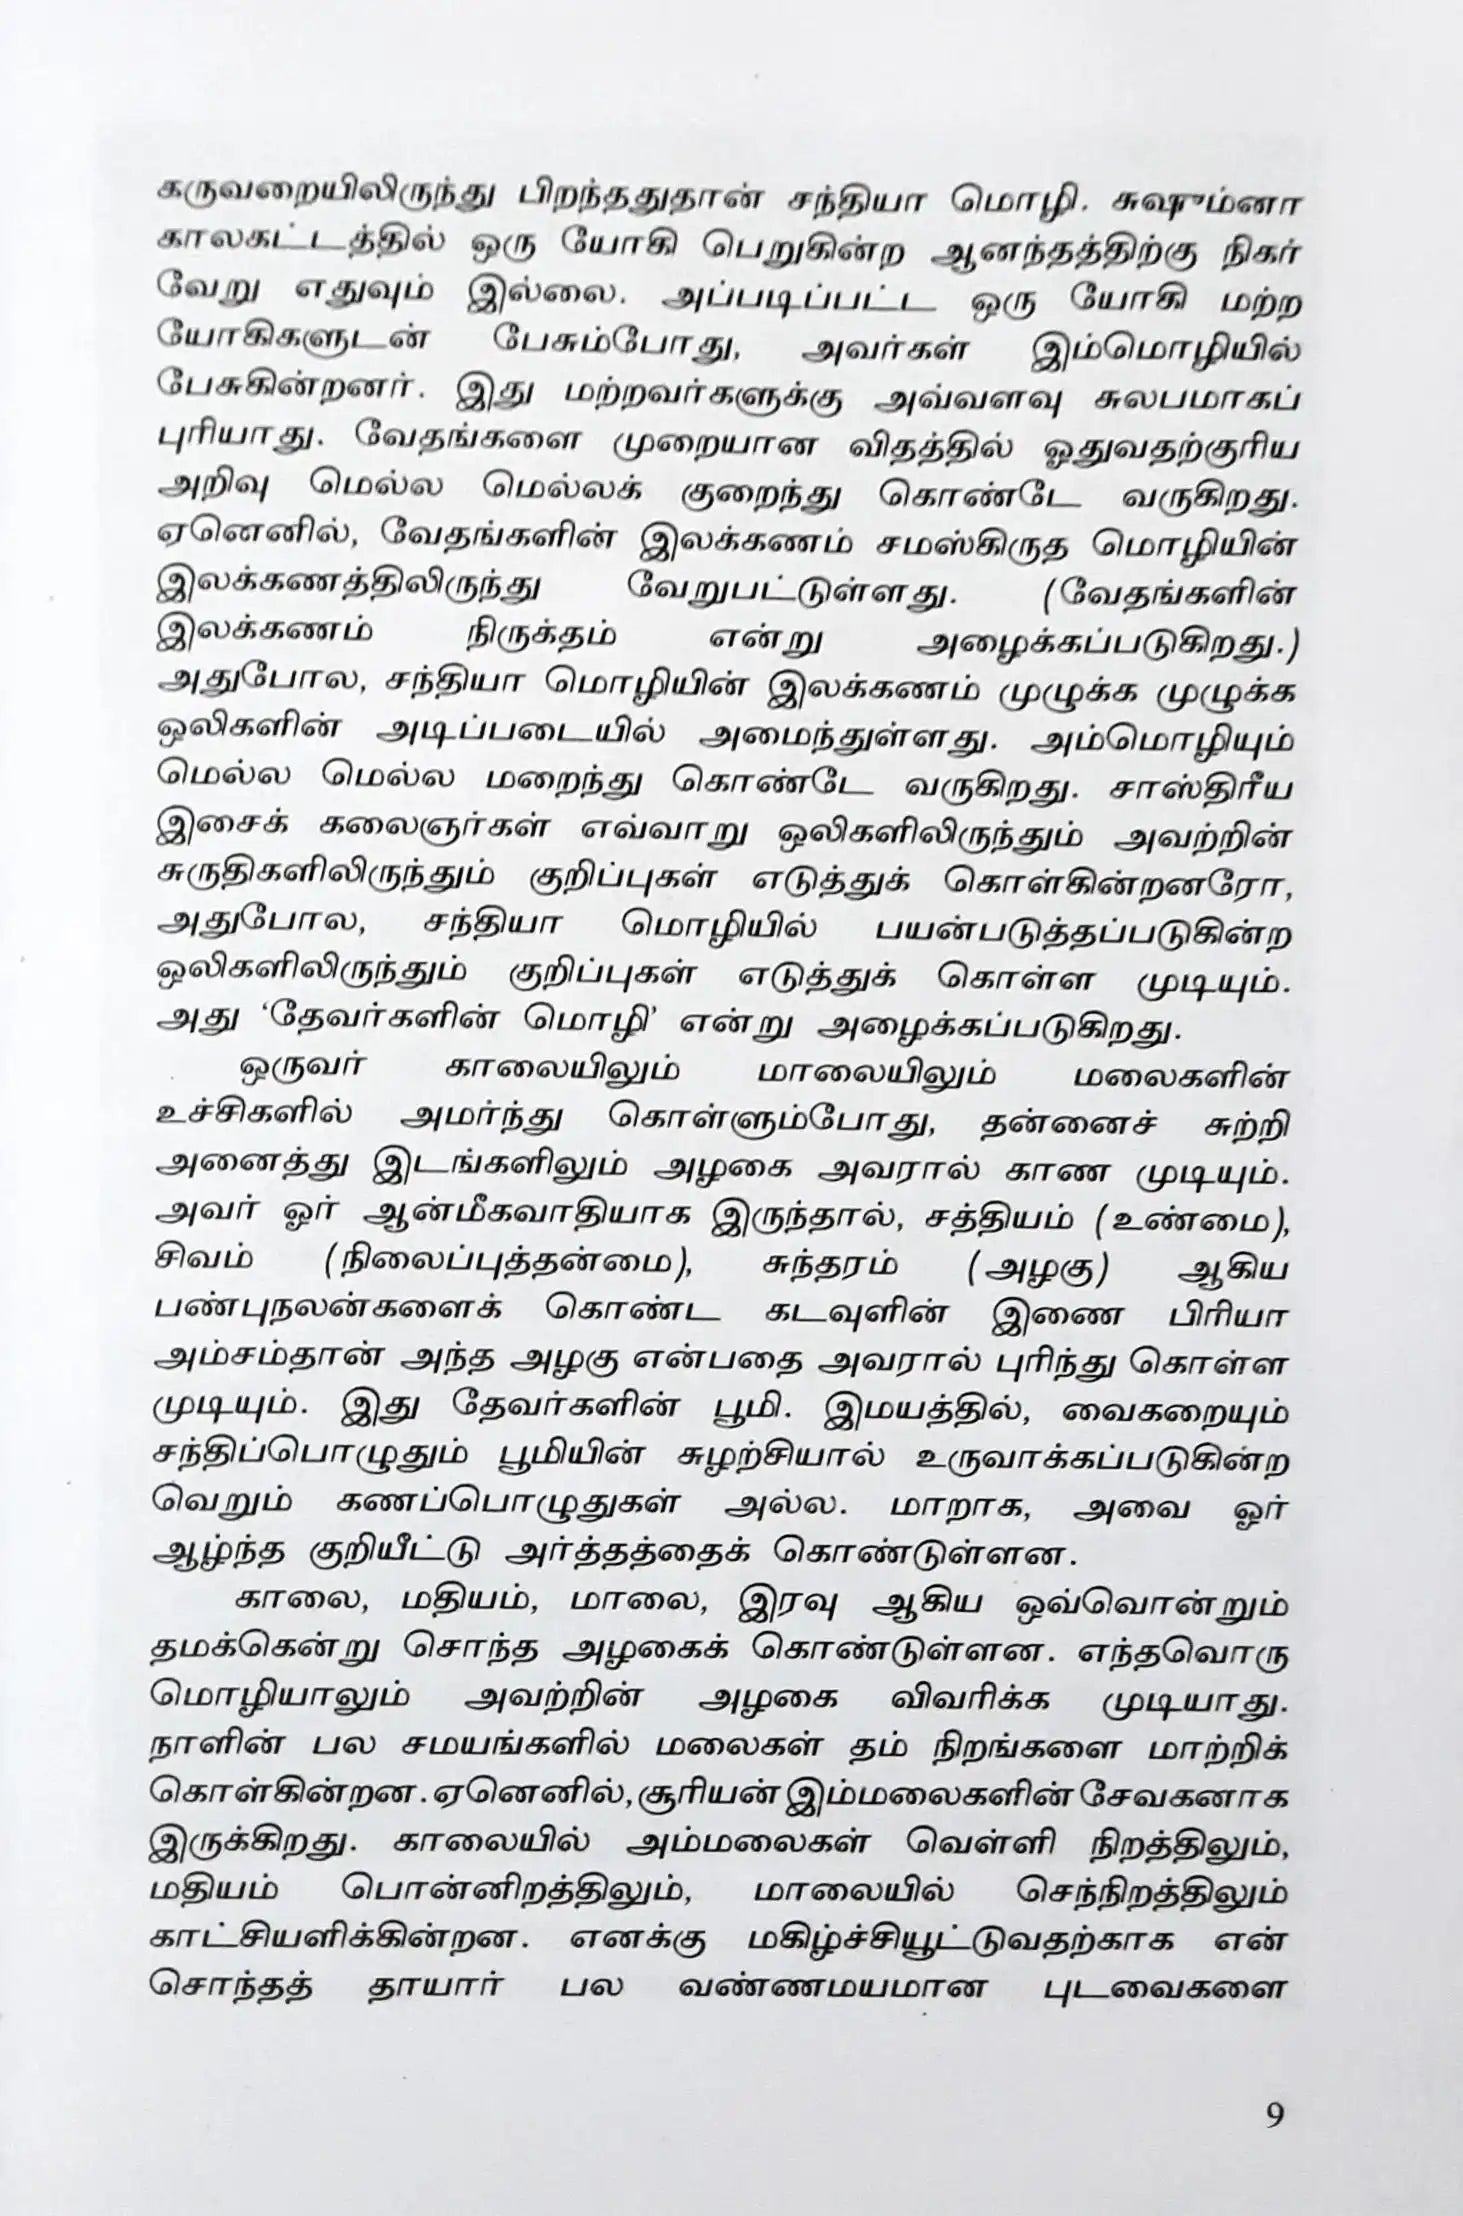 கருவறையிலிருந்து பிறந்ததுதான் சந்தியா மொழி. சுஷும்னா
காலகட்டத்தில் ஒரு யோகி பெறுகின்ற ஆனந்தத்திற்கு நிகர்
வேறு எதுவும் இல்லை. அப்படிப்பட்ட ஒரு யோகி மற்ற
யோகிகளுடன் பேசும்போது, அவர்கள் இம்மொழியில்
பேசுகின்றனர். இது மற்றவர்களுக்கு அவ்வளவு சுலபமாகப்
புரியாது. வேதங்களை முறையான விதத்தில் ஓதுவதற்குரிய
அறிவு மெல்ல மெல்லக் குறைந்து கொண்டே வருகிறது.
ஏனெனில், வேதங்களின் இலக்கணம் சமஸ்கிருத மொழியின்
இலக்கணத்திலிருந்து வேறுபட்டுள்ளது. (வேதங்களின்
இலக்கணம் நிருக்தம் என்று அழைக்கப்படுகிறது.)
அதுபோல, சந்தியா மொழியின் இலக்கணம் முழுக்க முழுக்க
ஒலிகளின் அடிப்படையில் அமைந்துள்ளது. அம்மொழியும்
மெல்ல மெல்ல மறைந்து கொண்டே வருகிறது. சாஸ்திரீய
இசைக் கலைஞர்கள் எவ்வாறு ஒலிகளிலிருந்தும் அவற்றின்
சுருதிகளிலிருந்தும் குறிப்புகள் எடுத்துக் கொள்கின்றனரோ,
அதுபோல, சந்தியா மொழியில் பயன்படுத்தப்படுகின்ற
ஒலிகளிலிருந்தும் குறிப்புகள் எடுத்துக் கொள்ள முடியும்.
அது ‘தேவர்களின் மொழி’ என்று அழைக்கப்படுகிறது.
ஒருவர் காலையிலும் மாலையிலும் மலைகளின்
உச்சிகளில் அமர்ந்து கொள்ளும்போது, தன்னைச் சுற்றி
அனைத்து இடங்களிலும் அழகை அவரால் காண முடியும்.
அவர் ஓர் ஆன்மீகவாதியாக இருந்தால், சத்தியம் (உண்மை),
சிவம் (நிலைப்புத்தன்மை), சுந்தரம் (அழகு) ஆகிய
பண்புநலன்களைக் கொண்ட கடவுளின் இணை பிரியா
அம்சம்தான் அந்த அழகு என்பதை அவரால் புரிந்து கொள்ள
முடியும். இது தேவர்களின் பூமி. இமயத்தில், வைகறையும்
சந்திப்பொழுதும் பூமியின் சுழற்சியால் உருவாக்கப்படுகின்ற
வெறும் கணப்பொழுதுகள் அல்ல. மாறாக, அவை ஓர்
ஆழ்ந்த குறியீட்டு அர்த்தத்தைக் கொண்டுள்ளன.
காலை, மதியம், மாலை, இரவு ஆகிய ஒவ்வொன்றும்
தமக்கென்று சொந்த அழகைக் கொண்டுள்ளன. எந்தவொரு
மொழியாலும் அவற்றின் அழகை விவரிக்க முடியாது.
நாளின் பல சமயங்களில் மலைகள் தம் நிறங்களை மாற்றிக்
கொள்கின்றன. ஏனெனில், சூரியன் இம்மலைகளின் சேவகனாக
இருக்கிறது. காலையில் அம்மலைகள் வெள்ளி நிறத்திலும்,
மதியம் பொன்னிறத்திலும், மாலையில் செந்நிறத்திலும்
காட்சியளிக்கின்றன. எனக்கு மகிழ்ச்சியூட்டுவதற்காக என்
சொந்தத் தாயார் பல வண்ணமயமான புடவைகளை
9